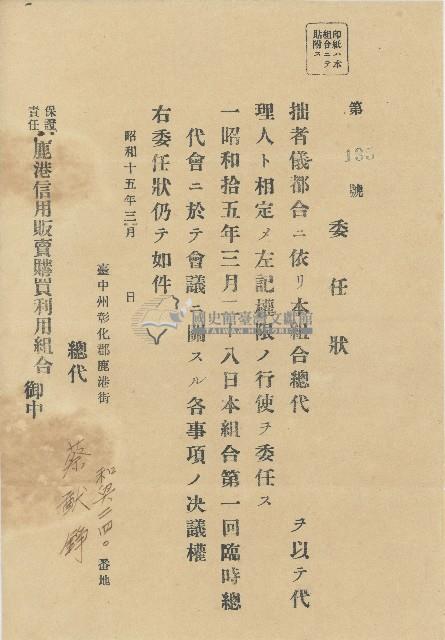 印紙ハ本
組合ニテ
貼附ス
第 135 號
委任狀
拙者儀都合ニ依リ本組合總代 ヲ以テ代
理人ト相定メ左記權限ノ行使ヲ委任ス
一昭和拾五年三月二十八日本組合第一回臨時總
代會ニ於テ會議ニ關スル各事項ノ決議權
右委任狀仍テ如件
昭和十五年三月 日
臺中州彰化郡鹿港街
番地
總代
保證
責任
鹿港信用販賣購買利用組合 御中
國史館臺灣文獻館
TAIWAN HISTORICA